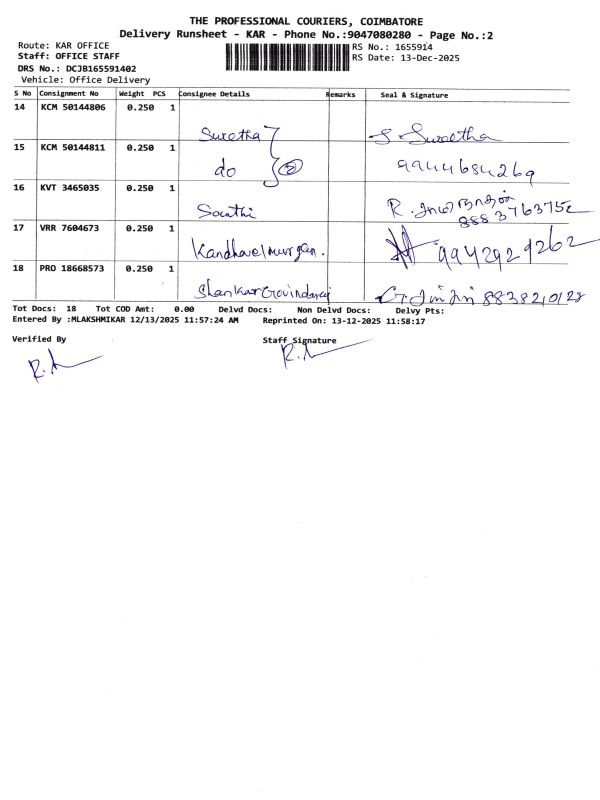 THE PROFESSIONAL COURIERS, COIMBATORE
Delivery Runsheet - KAR - Phone No.:9047080280 - Page No.:2
Route: KAR OFFICE RS No.: 1655914
Staff: OFFICE STAFF RS Date: 13-Dec-2025
DRS No.: DCJB165591402
Vehicle: Office Delivery
S No Consignment No Weight PCS Consignee Details Remarks Seal & Signature
14 KCM 50144806 0.250 1
Suretha S Suretha
15 KCM 50144811 0.250 1
do 2 9944684269
16 KVT 3465035 0.250 1
R.
8883763752
17 VRR 7604673 0.250 1
Kandhavelmurgan. 9942929262
18 PRO 18668573 0.250 1
Shankar Govindaraj 8838210128
Tot Docs: 18 Tot COD Amt: 0.00 Delvd Docs: Non Delvd Docs: Delvy Pts:
Entered By :MLAKSHMIKAR 12/13/2025 11:57:24 AM Reprinted On: 13-12-2025 11:58:17
Verified By Staff Signature